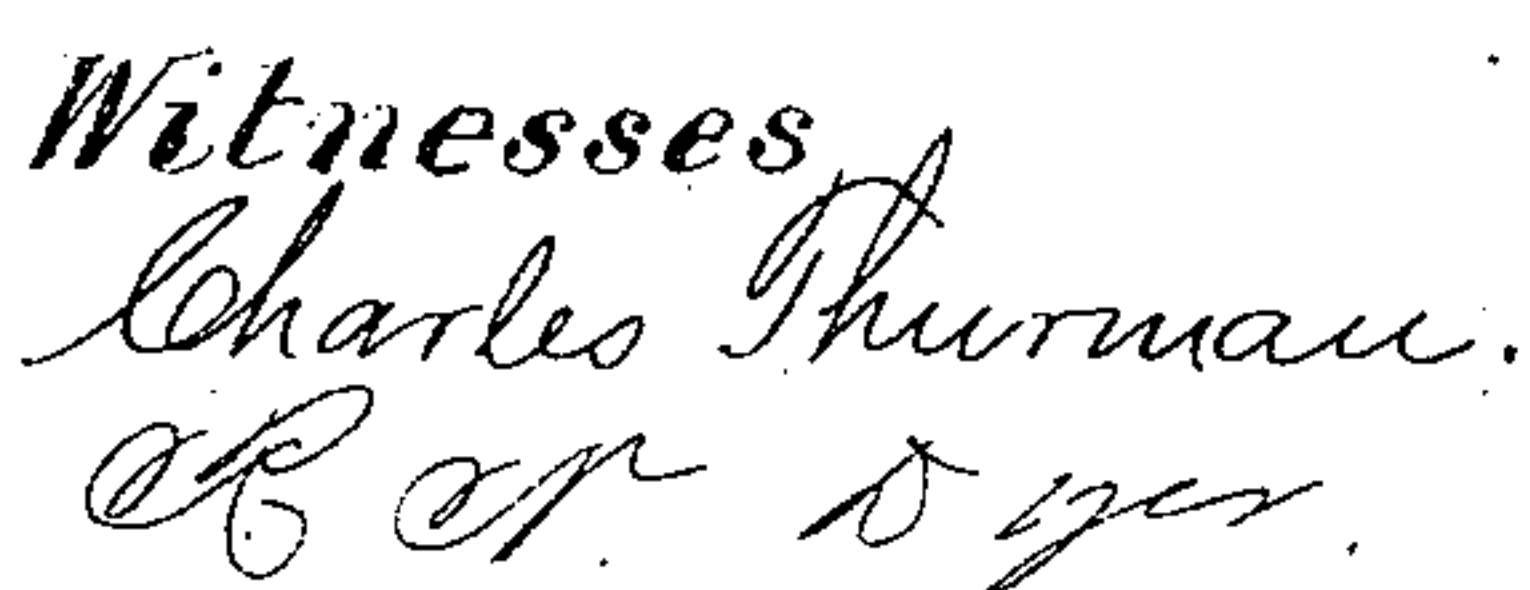 Witnesses
Charles Thurman.
R N. Dyer.